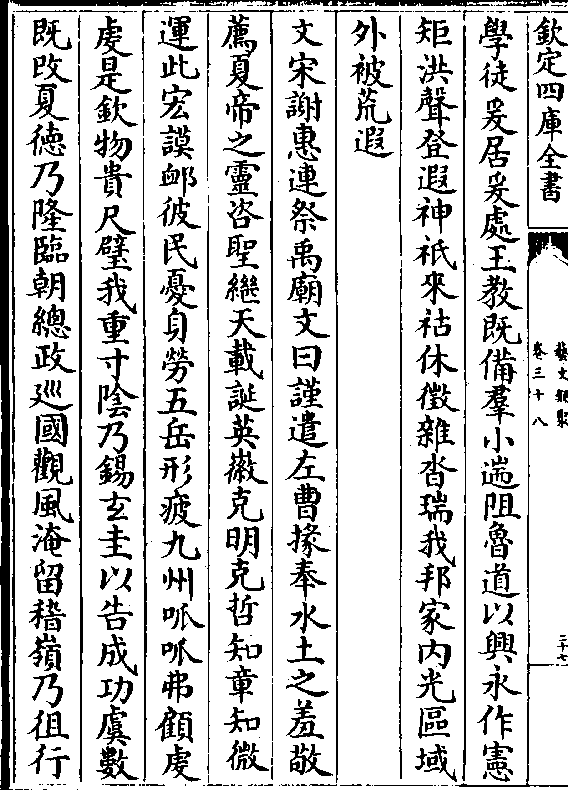 欽定四庫全書
藝文類聚
卷三十八
三十七
學徒爰居爰處王教既備羣小遄阻魯道以興永作憲
矩洪聲登遐神祇來祜休徵雜沓瑞我邦家内光區域
外被荒遐
文宋謝惠連祭禹廟文曰謹遣左曹掾奉水土之羞敬
薦夏帝之靈咨聖繼天載誕英徽克明克哲知章知微
運此宏謨䘏彼民憂身勞五岳形疲九州呱呱弗顧虔
虔是欽物貴尺璧我重寸陰乃錫玄圭以告成功虞數
既改夏德乃隆臨朝總政巡國觀風淹留稽嶺乃徂行